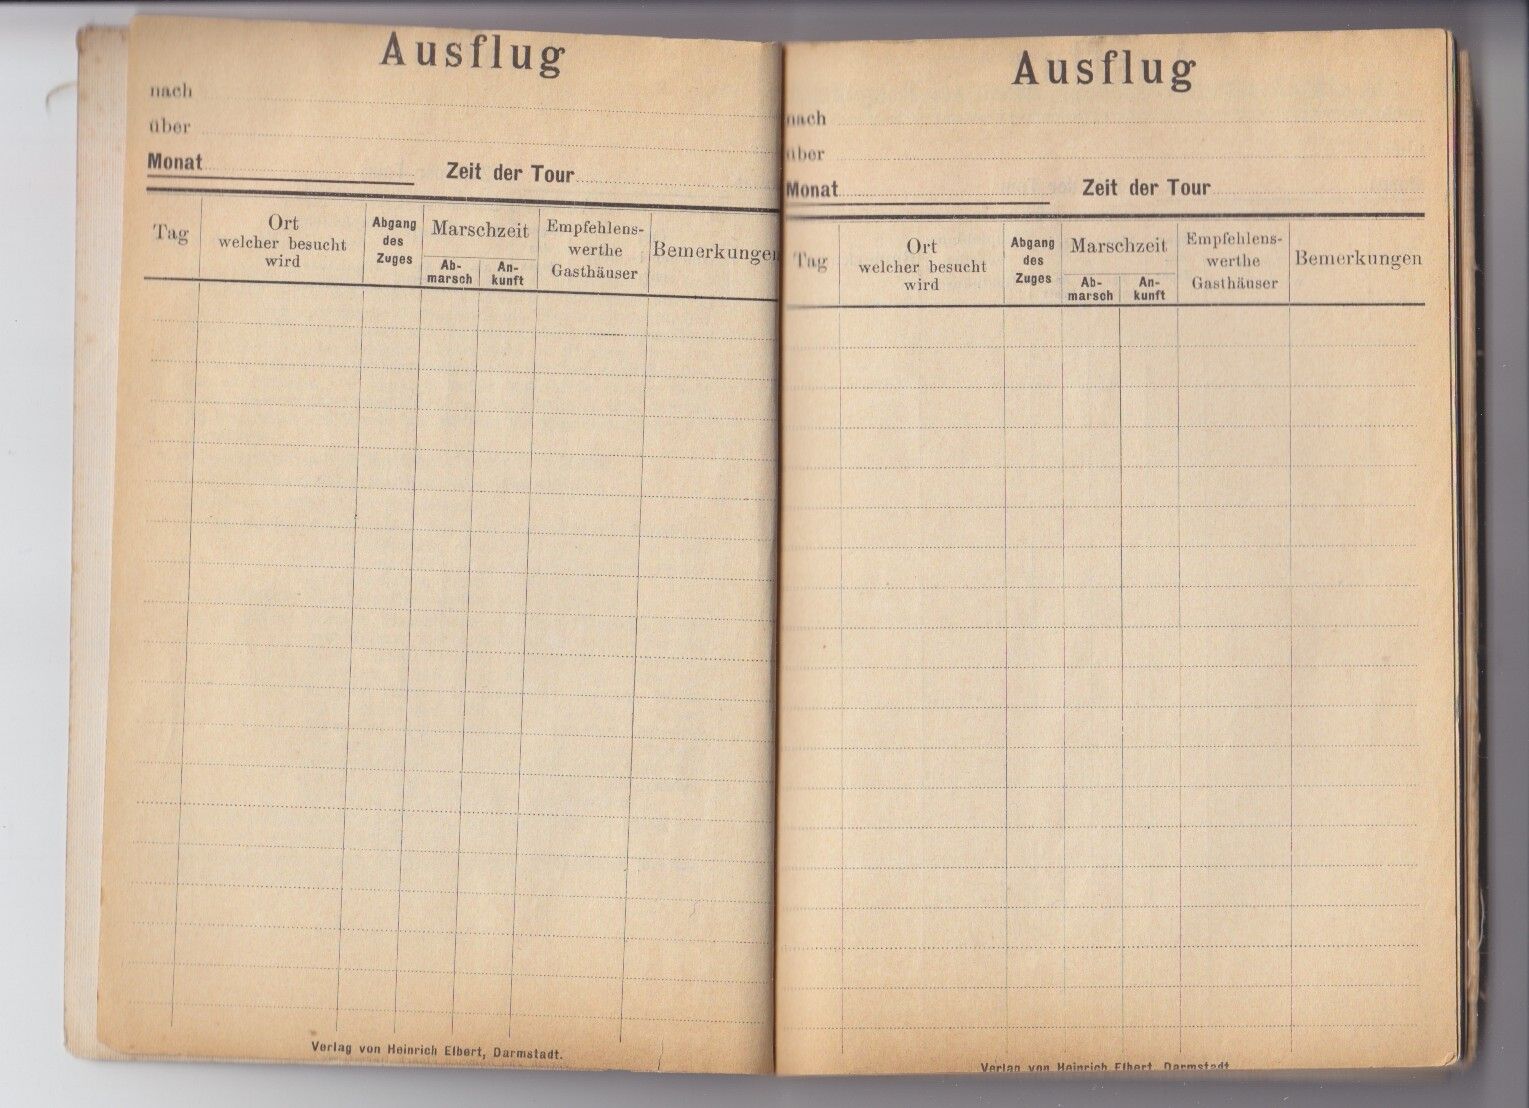 Ausflug
nach
über
Monat Zeit der Tour
Tag
Ort
welcher besucht
wird
Abgang
des
Zuges
Marschzeit
Ab-
marsch
An-
kunft
Empfehlens-
werthe
Gasthäuser
Bemerkungen
Verlag von Heinrich Elbert, Darmstadt.
Ausflug
nach
über
Monat Zeit der Tour
Tag
Ort
welcher besucht
wird
Abgang
des
Zuges
Marschzeit
Ab-
marsch
An-
kunft
Empfehlens-
werthe
Gasthäuser
Bemerkungen
Verlag von Heinrich Elbert, Darmstadt